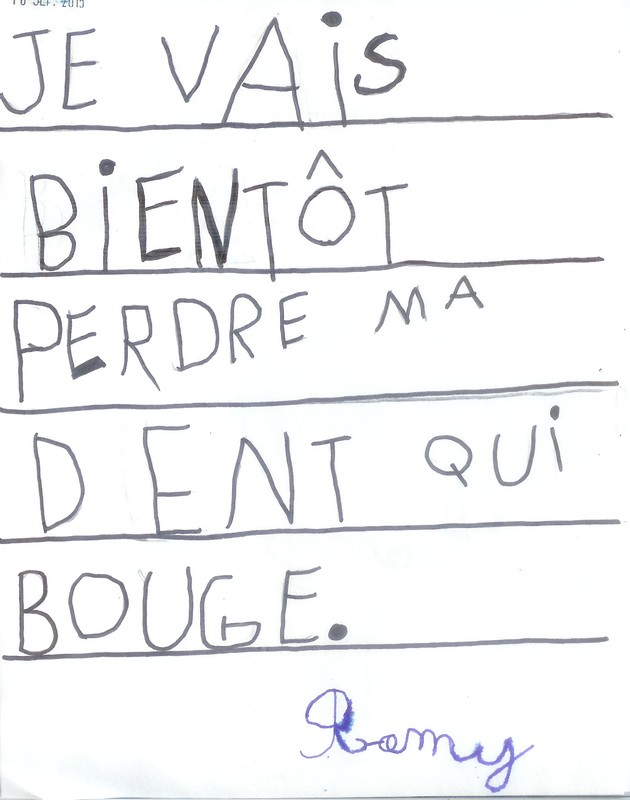 JE VAiS
BiENTÔT
PERDRE MA
DENT QUi
BOUGE.
Romy